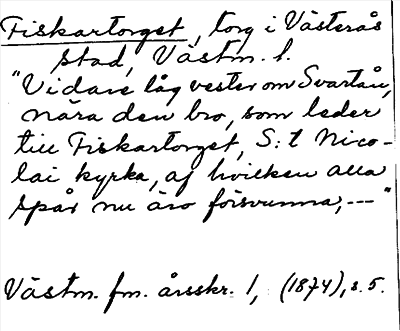 Fiskartorget, torg i Västerås
stad, Västm. l.
"Vidare låg vester om Svartån,
nära den bro, som leder
till Fiskartorget, S:t Nico-
lai kyrka, af hvilken alla
spår nu äro försvunna, ---"
Västm. fm. årsskr. 1, (1874), s. 5.